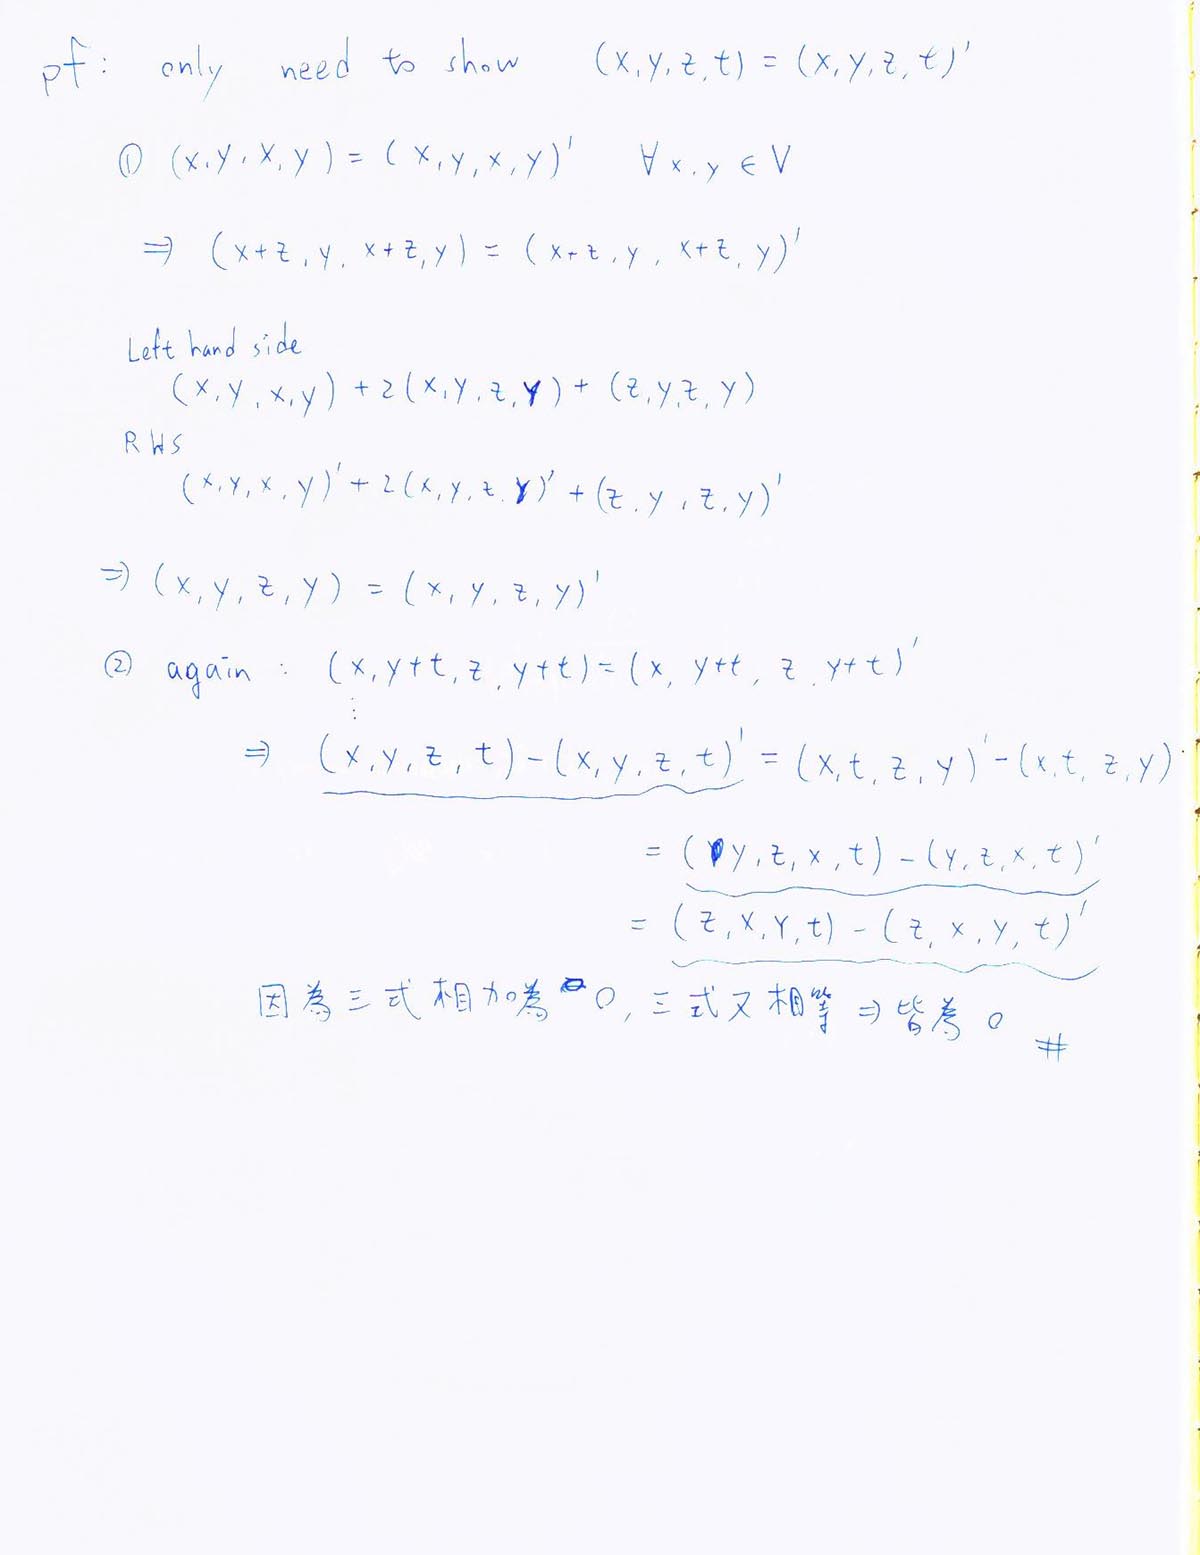 pf: only need to show (x,y,z,t) = (x,y,z,t)'
① (x,y,x,y) = (x,y,x,y)' ∀ x,y ∈ V
⇒ (x+z,y,x+z,y) = (x+z,y,x+z,y)'
Left hand side
(x,y,x,y) + 2(x,y,z,y) + (z,y,z,y)
RHS
(x,y,x,y)' + 2(x,y,z,y)' + (z,y,z,y)'
⇒ (x,y,z,y) = (x,y,z,y)'
② again : (x,y+t,z,y+t) = (x,y+t,z,y+t)'
⋮
⇒ (x,y,z,t) - (x,y,z,t)' = (x,t,z,y)' - (x,t,z,y)
= (y,z,x,t) - (y,z,x,t)'
= (z,x,y,t) - (z,x,y,t)'
因為三式相加為0, 三式又相等 ⇒ 皆為 0 #